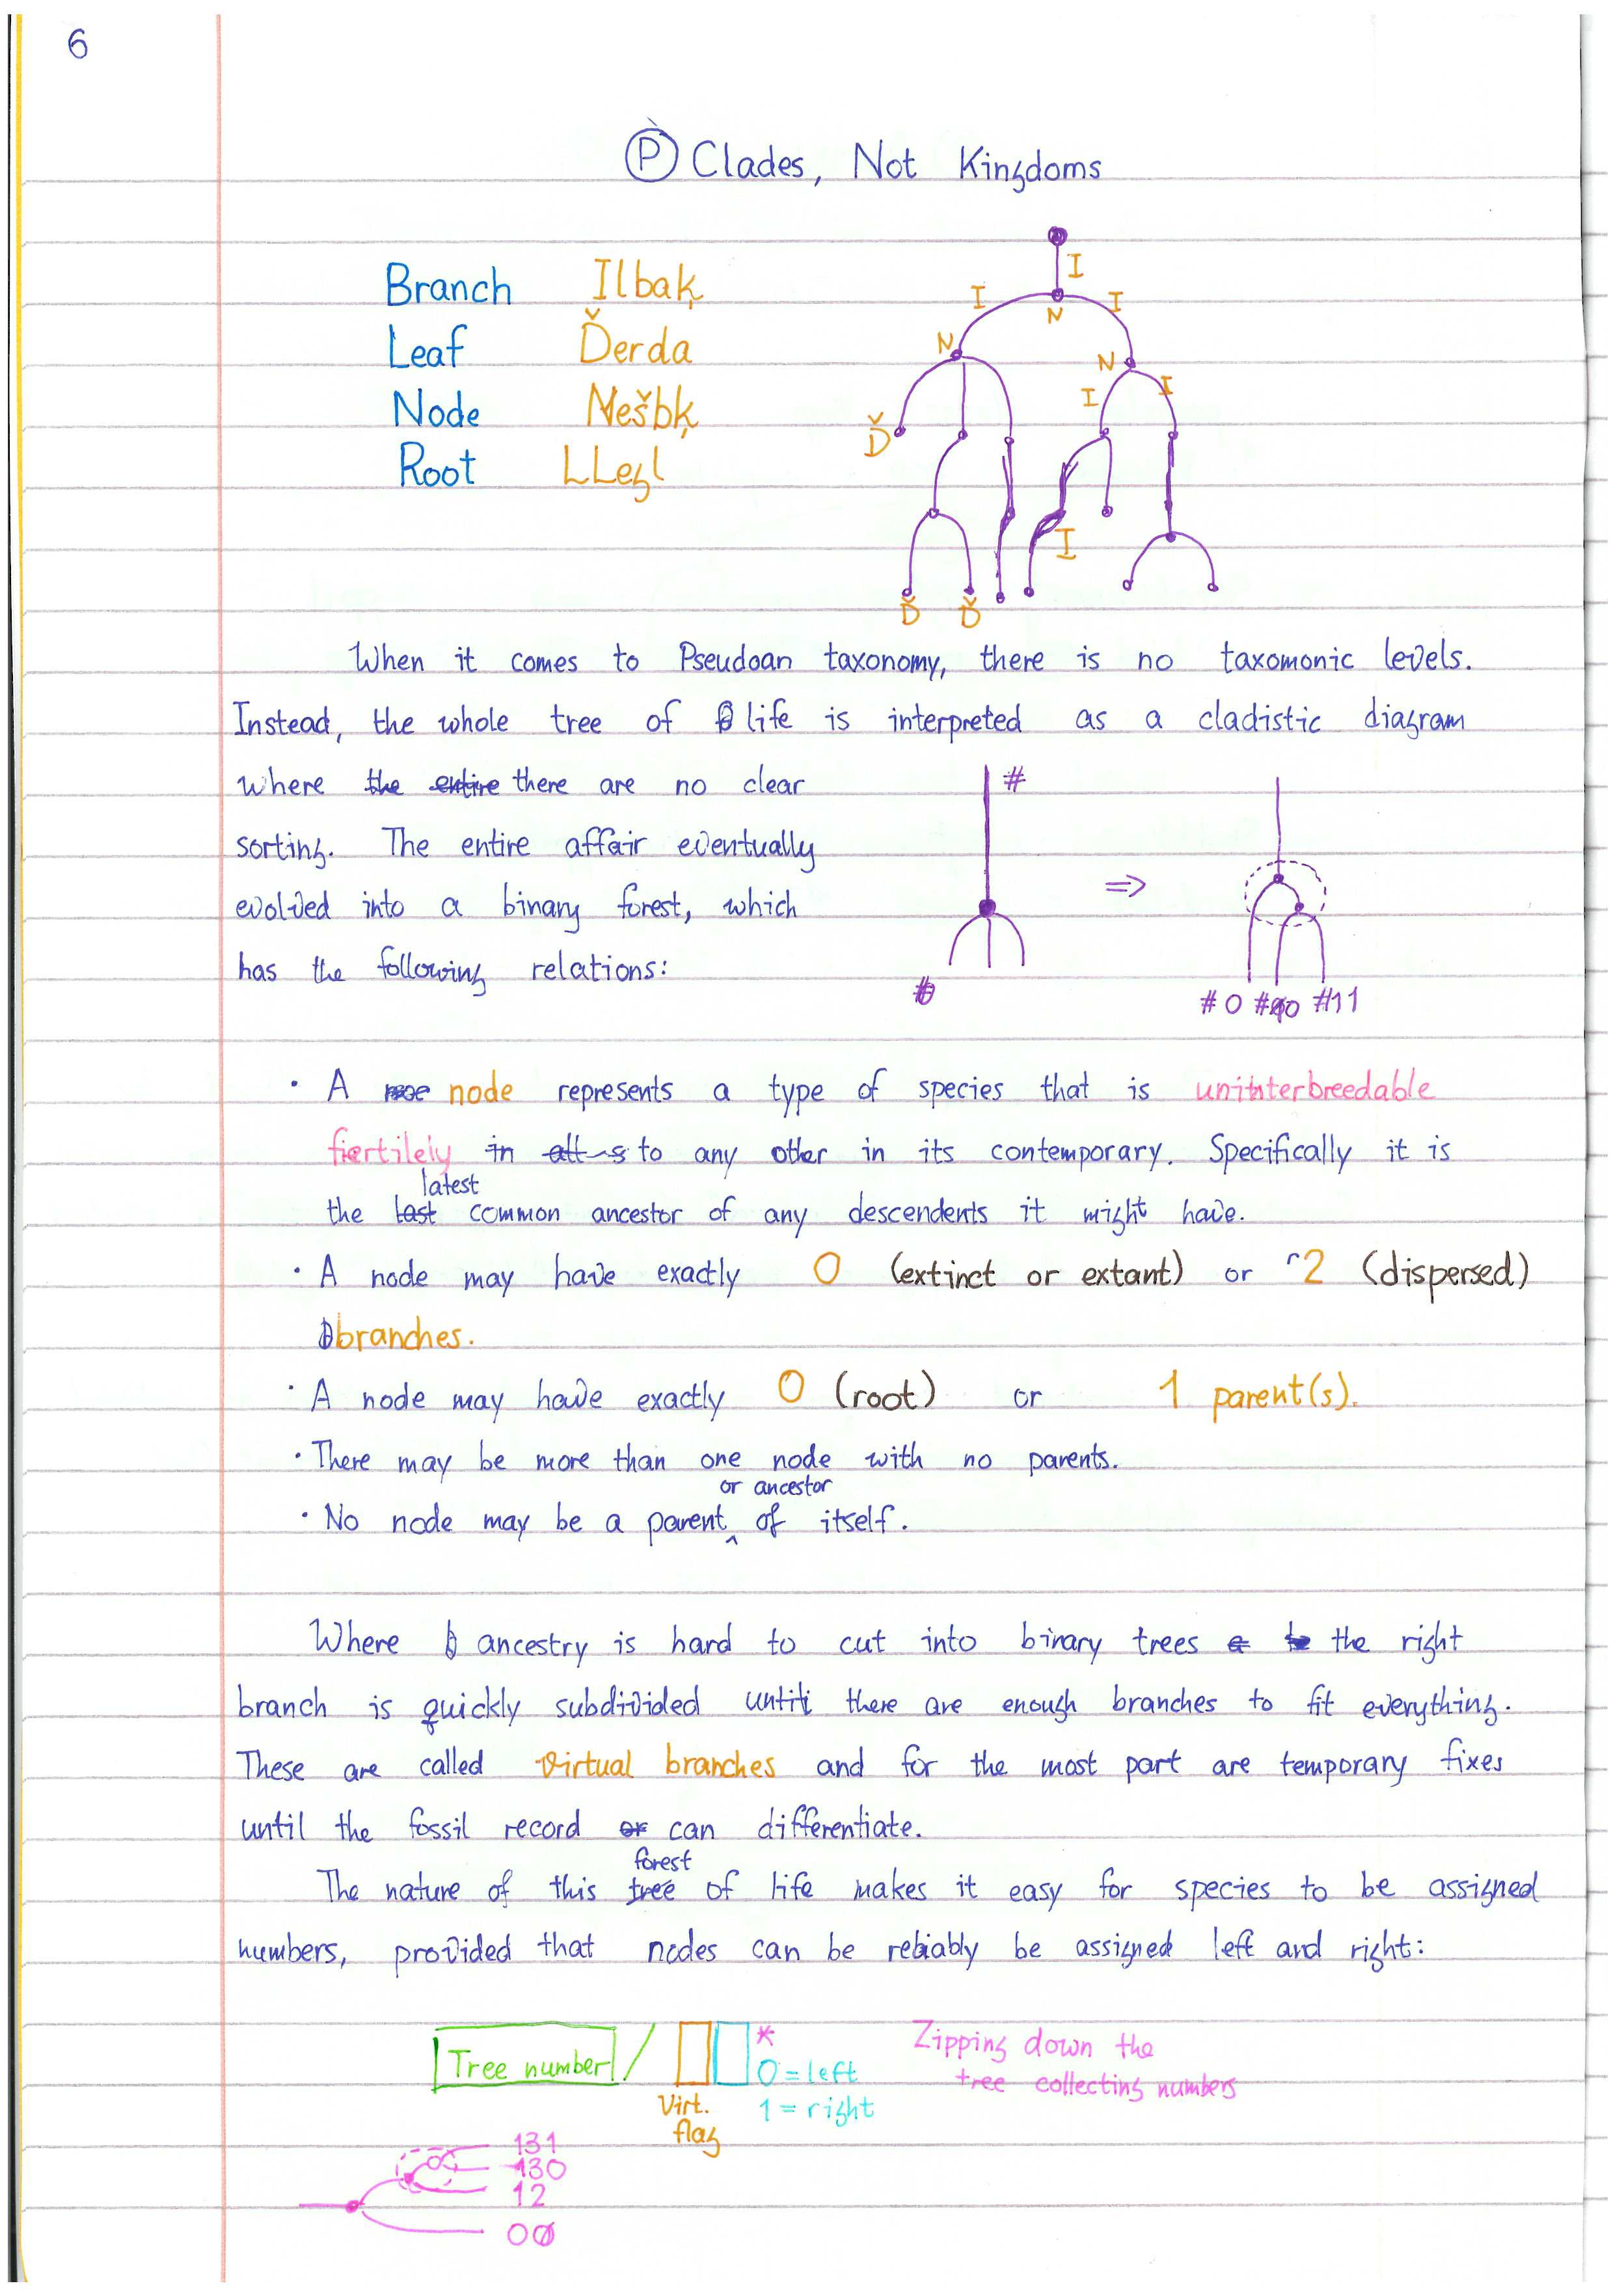 6
Ⓟ Clades, Not Kingdoms
Branch Ilbaķ
Leaf Ďerda
Node Nešbķ
Root LLegl
I
I I
N
N N
I I
Ď
I
Ď Ď
When it comes to Pseudoan taxonomy, there is no taxomonic levels.
Instead, the whole tree of life is interpreted as a cladistic diagram
where the entire there are no clear
sorting. The entire affair eventually
evolved into a binary forest, which
has the following relations:
#
⇒
#0 #10 #11
· A node represents a type of species that is uninterbreedable
fiertilely in all s to any other in its contemporary. Specifically it is
latest
the last common ancestor of any descendents it might have.
· A node may have exactly 0 (extinct or extant) or 2 (dispersed)
branches.
· A node may have exactly 0 (root) or 1 parent(s).
· There may be more than one node with no parents.
or ancestor
· No node may be a parent‸ of itself.
Where ancestry is hard to cut into binary trees the right
branch is quickly subdivided until there are enough branches to fit everything.
These are called virtual branches and for the most part are temporary fixes
until the fossil record or can differentiate.
forest
The nature of this tree of life makes it easy for species to be assigned
numbers, provided that nodes can be reliably be assigned left and right:
Tree number / *
0 = left
1 = right
Virt.
flag
Zipping down the
tree collecting numbers
131
130
12
00